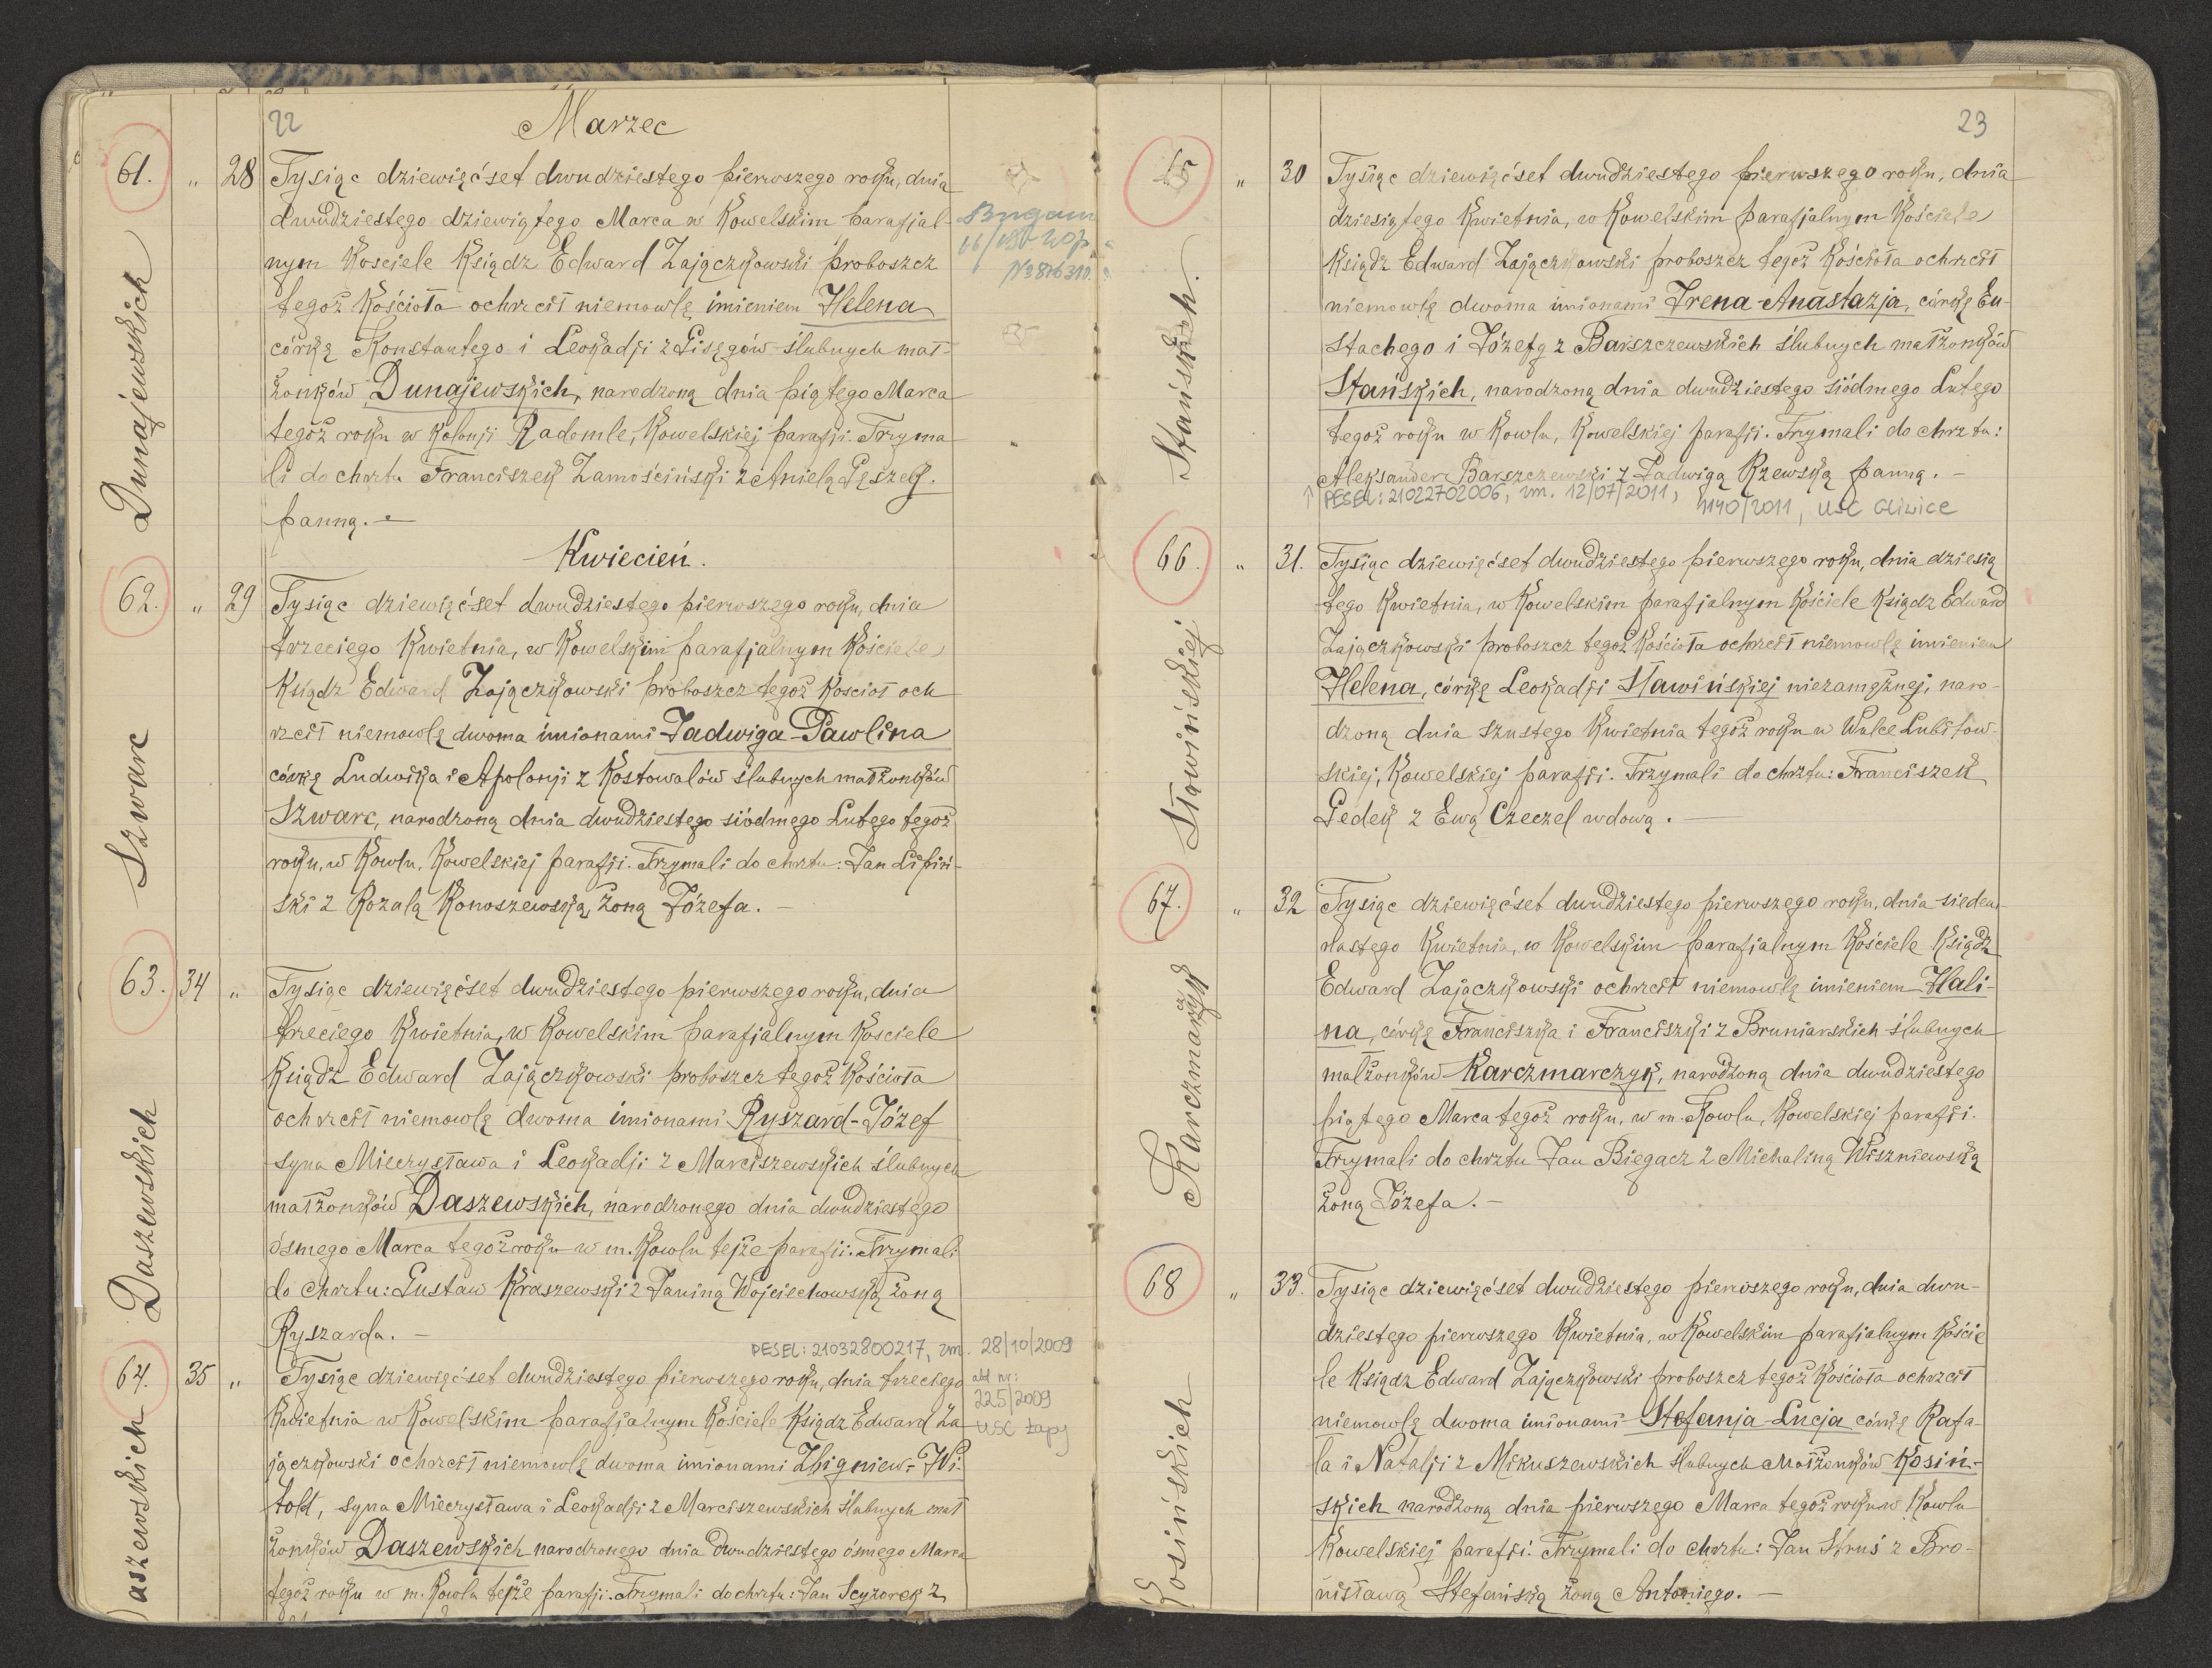 22
Marzec
61.
"
28
Dunajewskich
Tysiąc dziewięćset dwudziestego pierwszego roku, dnia
dwudziestego dziewiątego Marca w Kowelskim parafjal-
nym Kościele Ksiądz Edward Zajączkowski proboszcz
tegoż Kościoła ochrcił niemowlę imieniem Helena
córkę Konstantego i Leokadji z Gisęgów ślubnych mał-
żonków Dunajewskich, narodzoną dnia piątego Marca
tegoż roku w Kolonji Rademle, Kowelskiej parafji. Trzyma
li do chrztu Franciszek Zamościński z Anielą Gęszek.
panną. —
Kwiecień.
62.
"
29
Szwarc
Tysiąc dziewięćset dwudziestego pierwszego roku, dnia
trzeciego Kwietnia, w Kowelskim parafjalnym Kościele
Ksiądz Edward Zajączkowski proboszcz tegoż Kościoł och
rzcił niemowlę dwoma imionami Jadwiga-Pawlina
córkę Ludwika i Apolonji z Kostowalów ślubnych małżonków
Szwarc, narodzoną dnia dwudziestego siódmego Lutego tegoż
roku, w Kowlu, Kowelskiej parafji. Trzymali do chrztu: Jan Lipiń-
ski z Rozalą Konoszewską, żoną Józefa. —
63.
34
"
Daszewskich
Tysiąc dziewięćset dwudziestego pierwszego roku, dnia
trzeciego Kwietnia, w Kowelskim parafjalnym Kosciele
Ksiądz Edward Zajączkowski proboszcz tegoż Kościoła
ochrzcił niemowlę dwoma imionami Ryszard-Józef
syna Mieczysława i Leokadji z Marciszewskich ślubnych
małżonków Daszewskich, narodzonego dnia dwudziestego
ósmego Marca tegoż roku w m. Kowlu tejże parafii. Trzymali
do chrztu: Gustaw Kraszewski z Janiną Wojciechowską żoną
Ryszarda. —
PESEL: 21032800217, zm. 28/10/2009
akt nr:
225/2009
USC Łapy
64.
35
"
Daszewskich
Tysiąc dziewięćset dwudziestego pierwszego roku, dnia trzeciego
Kwietnia w Kowelskim parafjalnym Kościele Ksiądz Edward Za
jączkowski ochrzcił niemowlę dwoma imionami Zbigniew-Wi-
told, syna Mieczysława i Leokadji z Marciszewskich ślubnych mał
żonków Daszewskich narodzonego dnia dwudziestego ósmego Marca
tegoż roku w m. Kowlu tejże parafji. Trzymali do chrztu: Jan Scyzorek z
23
65
"
30
Stańskich.
Tysiąc dziewięćset dwudziestego pierwszego roku, dnia
dziesiątego Kwietnia, w Kowelskim parafjalnym Kościele
Ksiądz Edward Zajączkowski proboszcz tegoż Kościoła ochrzcił
niemowlę dwoma imionami Irena-Anastazja, córkę Eu-
stachego i Józefy z Barszczewskich ślubnych małżonków
Stańskich, narodzoną dnia dwudziestego siódmego Lutego
tegoż roku w Kowlu, Kowelskiej parafji. Trzymali do chrztu:
Aleksander Barszczewski z Jadwigą Rzewską panną. —
↑ PESEL: 21022702006, zm. 12/07/2011,
1140/2011, USC Gliwice
66.
"
31.
Sławińskiej
Tysiąc dziewięćset dwudziestego pierwszego roku, dnia dziesią
tego Kwietnia, w Kowelskim parafjalnym Kościele Ksiądz Edward
Zajączkowski proboszcz tegoż Kościoła ochrzcił niemowlę imieniem
Helena, córkę Leokadji Sławińskiej niezamężnej, naro-
dzoną dnia szustego Kwietnia tegoż roku w Wulce Lubitow-
skiej, Kowelskiej parafji. Trzymali do chrztu: Franciszek
Gedek z Ewą Czeczel wdową. —
67.
"
32
Karczmarzyk
Tysiąc dziewięćset dwudziestego pierwszego roku, dnia siedem-
nastego Kwietnia, w Kowelskim parafjalnym Kościele Ksiądz
Edward Zajączkowski ochrzcił niemowlę imieniem Hali-
na, córkę Franciszka i Franciszki z Bruniarskich ślubnych
małżonków Karczmarczyk, narodzoną dnia dwudziestego
piątego Marca tegoż roku, w m. Kowlu, Kowelskiej parafji.
Trzymali do chrztu Jan Biegacz z Michaliną Wiszniewską
żoną Józefa. —
68
"
33.
Kosińskich
Tysiąc dziewięćset dwudziestego pierwszego roku, dnia dwu-
dziestego pierwszego Kwietnia, w Kowelskim parafjalnym Koście
le Ksiądz Edward Zajączkowski proboszcz tegoż Kościoła ochrzcił
niemowlę dwoma imionami Stefanja-Lucja córkę Rafa-
la i Natalji z Mikuszewskich ślubnych małżonków Kosiń-
skich narodzoną dnia pierwszego Marca tegoż roku w Kowlu
Kowelskiej parafji. Trzymali do chrztu: Jan Struś z Bro-
nisławą Stefańską żoną Antoniego. —